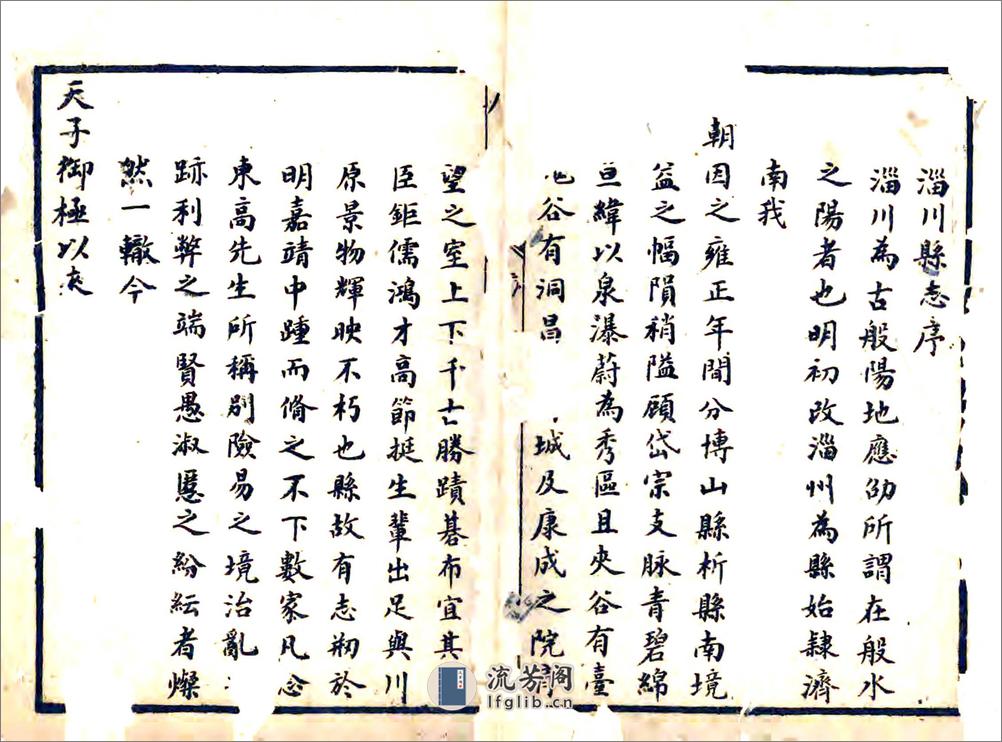 淄川縣志序
淄川為古般陽地應劭所謂在般水
之陽者也明初改淄州為縣始隷濟
南我
朝因之雍正年間分博山縣析縣南境
益之幅隕稍隘顧岱宗支脉青碧綿
亘緯以泉瀑蔚為秀區且夾谷有臺
谷有洞昌城及康成之院
望之室上下千古勝蹟碁布宜其
臣鉅儒鴻才高節挺生輩出足與川
原景物輝映不朽也縣故有志刱於
明嘉靖中踵而脩之不下數家凡
東高先生所稱別險易之境治亂
跡利弊之端賢愚淑慝之紛紜者燦
然一轍今
天子御極以
流芳阁
lfglib.cn